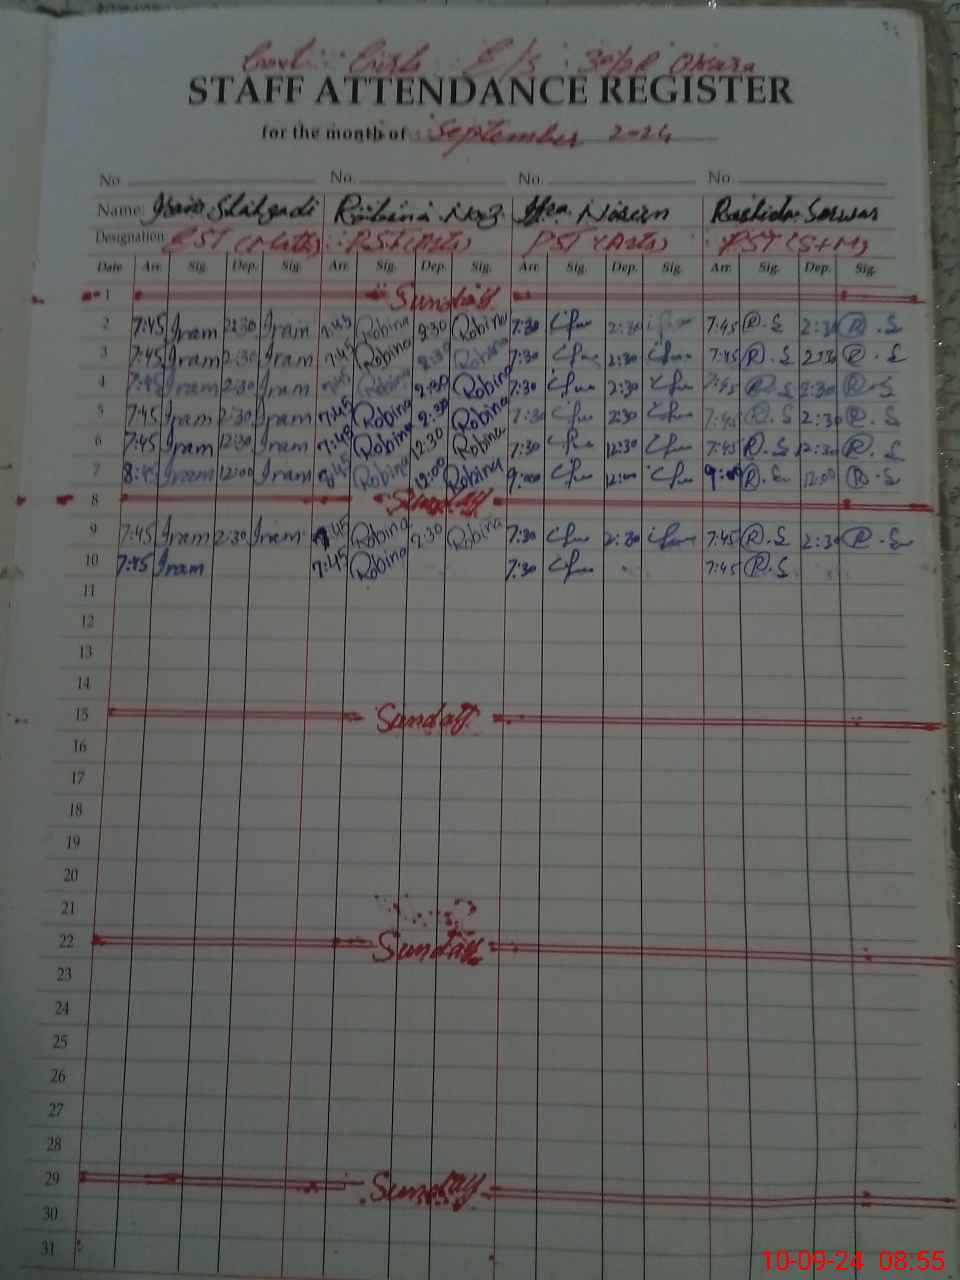 Govt. Girls E/S 30/2R Okara
STAFF ATTENDANCE REGISTER
for the month of September 2024
No. No. No. No.
Name: Iram Shahzadi Rubina Naz Noreen Rashida Sarwar
Designation PST (Arts) PST (S+M)
Date Arr. Sig. Dep. Sig. Arr. Sig. Dep. Sig. Arr. Sig. Dep. Sig. Arr. Sig. Dep. Sig.
1 Sunday
2 7:45 Iram 2:30 Iram 7:45 Robina 2:30 Robina 7:30 2:30 7:45 R.S 2:30 R.S
3 7:45 Iram 2:30 Iram 7:45 Robina 2:30 Robina 7:30 2:30 7:45 R.S 2:30 R.S
4 7:45 Iram 2:30 Iram 7:45 Robina 2:30 Robina 7:30 2:30 7:45 R.S 2:30 R.S
5 7:45 Iram 2:30 Iram 7:45 Robina 2:30 Robina 7:30 2:30 7:45 R.S 2:30 R.S
6 7:45 Iram 12:30 Iram 7:45 Robina 12:30 Robina 7:30 12:30 7:45 R.S 12:30 R.S
7 8:45 Iram 12:00 Iram 8:45 Robina 12:00 Robina 9:00 12:00 9:00 R.S 12:00 R.S
8 Sunday
9 7:45 Iram 2:30 Iram 7:45 Robina 2:30 Robina 7:30 2:30 7:45 R.S 2:30 R.S
10 7:45 Iram 7:45 Robina 7:30 7:45 R.S
11
12
13
14
15 Sunday
16
17
18
19
20
21
22 Sunday
23
24
25
26
27
28
29 Sunday
30
31
10-09-24 08:55